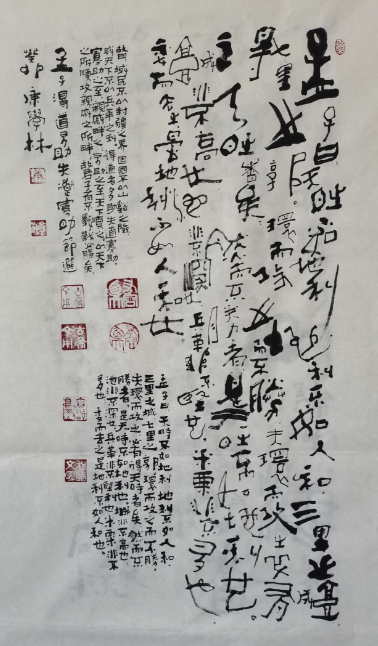 孟子曰天时不如地利地利不如人和三里之城
七里之郭環而攻之而不勝夫環而攻之必有得
天时者矣然而不勝者是天时不如地利也城
非不高也池非不深也兵革非不堅利也米粟非不多也
委而去之是地利不如人和也
故曰域民不以封疆之界固國不以山谿之險
威天下不以兵革之利得道者多助失道寡助
寡助之至親戚畔之多助之至天下順之以天下
之所順攻親戚之所畔故君子有不戰戰必勝矣
孟子得道多助失道寡助節選
學林
孟子曰天时不如地利地利不如人和
三里之城七里之郭環而攻之而不勝
夫環而攻之必有得天时者矣然而不
勝者是天时不如地利也城非不高也
池非不深也兵革非不堅利也米粟非不
多也委而去之是地利不如人和也